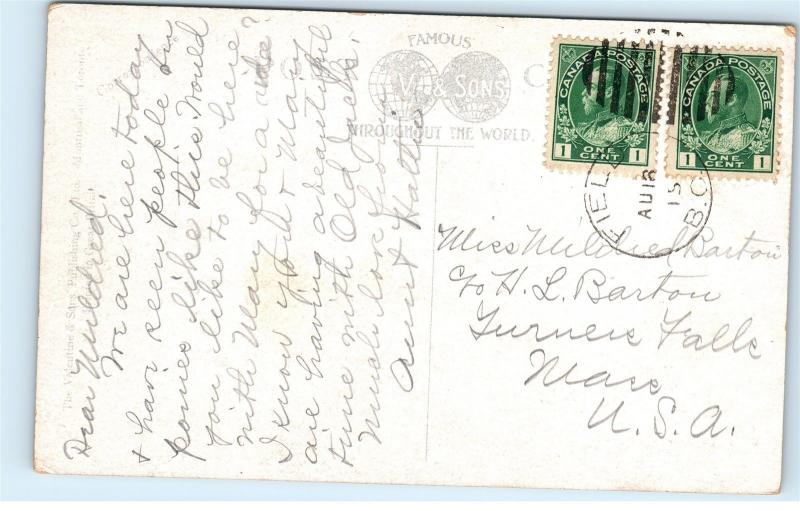 Dear Mildred:
We are here today
& have seen people on
ponies like this. Would
you like to be here
with Mary for a ride?
I know you & Mary
are having a beautiful
time with Old Jack.
Much love from
Aunt Hattie
The Valentine & Sons Publishing Co., Ltd., Montreal and Toronto.
FAMOUS
V & SONS
THROUGHOUT THE WORLD.
CANADA POSTAGE
1 ONE CENT 1
CANADA POSTAGE
1 ONE CENT 1
FIELD
AU 18
15
B.C.
Miss Mildred Barton
c/o H. L. Barton
Turners Falls
Mass
U.S.A.